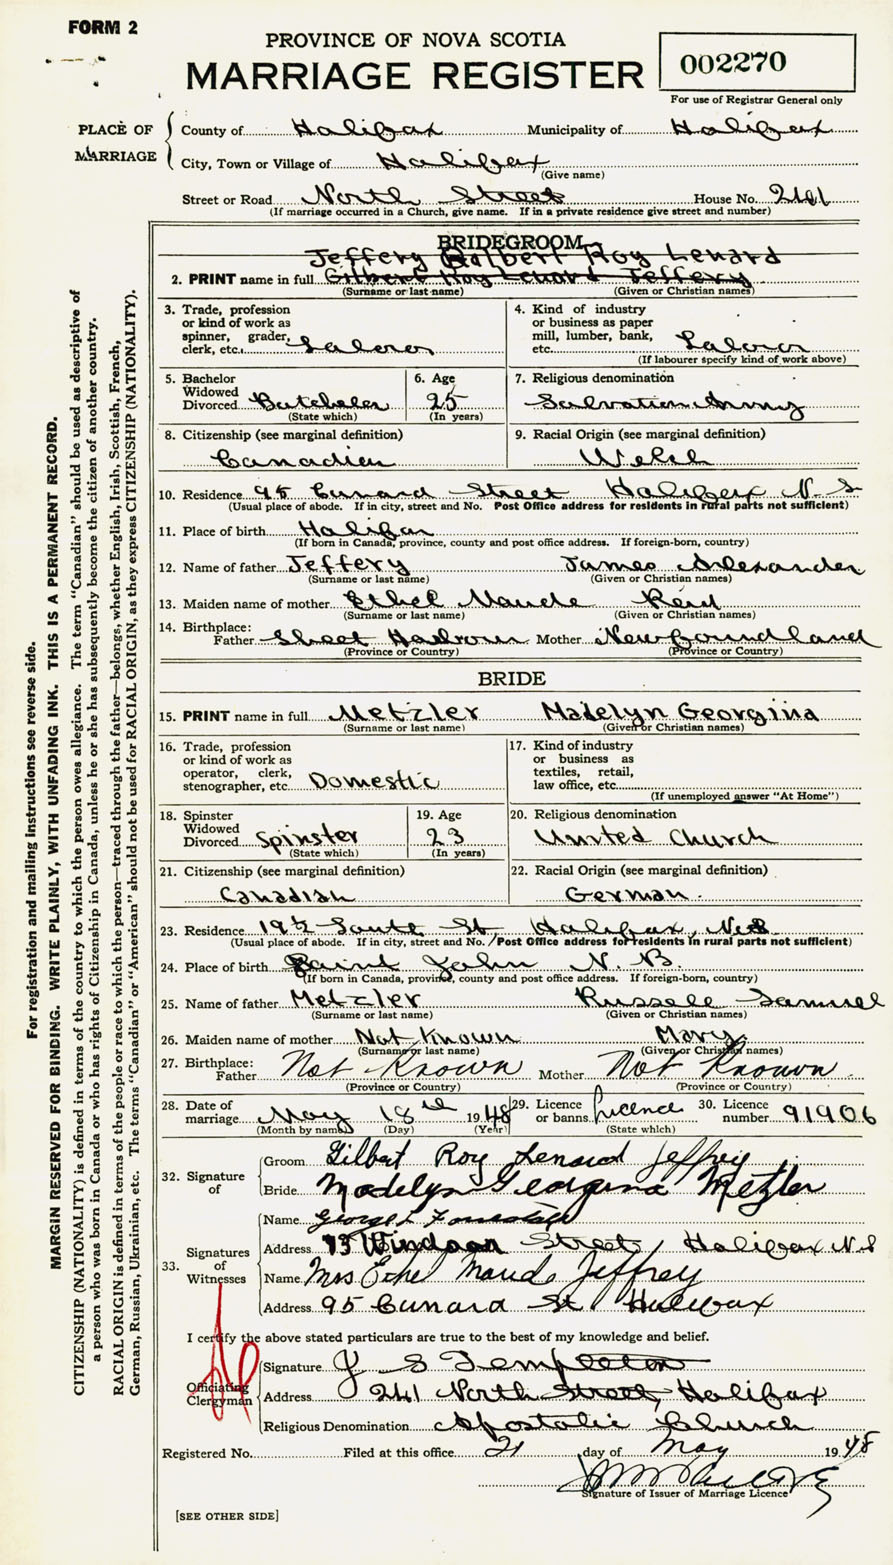 FORM 2
PROVINCE OF NOVA SCOTIA
MARRIAGE REGISTER
002270
For use of Registrar General only
PLACE OF MARRIAGE
County of Halifax Municipality of Halifax
City, Town or Village of Halifax
(Give name)
Street or Road North Street House No. 241
(If marriage occurred in a Church, give name. If in a private residence give street and number)
BRIDEGROOM
Jeffery Gilbert Roy Lenard
2. PRINT name in full Gilbert Roy Lenard Jeffery
(Surname or last name) (Given or Christian names)
3. Trade, profession or kind of work as spinner, grader, clerk, etc. Laborer
4. Kind of industry or business as paper mill, lumber, bank, etc. Laborer
(If labourer specify kind of work above)
5. Bachelor Widowed Divorced Batcheler
(State which)
6. Age 25
(In years)
7. Religious denomination Salvation Army
8. Citizenship (see marginal definition)
Canadien
9. Racial Origin (see marginal definition)
Welsh
10. Residence 95 Cunard Street Halifax N.S
(Usual place of abode. If in city, street and No. Post Office address for residents in rural parts not sufficient)
11. Place of birth Halifax
(If born in Canada, province, county and post office address. If foreign-born, country)
12. Name of father Jeffery James Alexander
(Surname or last name) (Given or Christian names)
13. Maiden name of mother Ethel Maude Reid
(Surname or last name) (Given or Christian names)
14. Birthplace:
Father Sheet Harbour Mother Newfoundland
(Province or Country) (Province or Country)
BRIDE
15. PRINT name in full Metzler Madelyn Georgina
(Surname or last name) (Given or Christian names)
16. Trade, profession or kind of work as operator, clerk, stenographer, etc Domestic
17. Kind of industry or business as textiles, retail, law office, etc.
(If unemployed answer "At Home")
18. Spinster Widowed Divorced Spinster
(State which)
19. Age 23
(In years)
20. Religious denomination
United Church
21. Citizenship (see marginal definition)
Canadian
22. Racial Origin (see marginal definition)
German.
23. Residence 19½ St. Halifax, N.S.
(Usual place of abode. If in city, street and No. Post Office address for residents in rural parts not sufficient)
24. Place of birth Saint John N. B.
(If born in Canada, province, county and post office address. If foreign-born, country)
25. Name of father Metzler Russell Samuel
(Surname or last name) (Given or Christian names)
26. Maiden name of mother Not Known Mary
(Surname or last name) (Given or Christian names)
27. Birthplace:
Father Not Known Mother Not Known
(Province or Country) (Province or Country)
28. Date of marriage May 18th 1948
(Month by name) (Day) (Year)
29. Licence or banns licence
(State which)
30. Licence number 91906
32. Signature of
Groom Gilbert Roy Lenard Jeffrey
Bride Madelyn Georgina Metzler
33. Signatures of Witnesses
Name George L
Address 73 Windsor Street, Halifax N.S
Name Mrs Ethel Maud Jeffrey
Address 95 Cunard St Halifax
I certify the above stated particulars are true to the best of my knowledge and belief.
Officiating Clergyman
Signature J S Templeton
Address 241 North Street, Halifax
Religious Denomination Apostolic Church
Registered No. Filed at this office 21 day of May 1948
Signature of Issuer of Marriage Licence
[SEE OTHER SIDE]
For registration and mailing instructions see reverse side.
MARGIN RESERVED FOR BINDING. WRITE PLAINLY, WITH UNFADING INK. THIS IS A PERMANENT RECORD.
CITIZENSHIP (NATIONALITY) is defined in terms of the country to which the person owes allegiance. The term "Canadian" should be used as descriptive of
a person who was born in Canada or who has rights of Citizenship in Canada, unless he or she has subsequently become the citizen of another country.
RACIAL ORIGIN is defined in terms of the people or race to which the person—traced through the father—belongs, whether English, Irish, Scottish, French,
German, Russian, Ukrainian, etc. The terms "Canadian" or "American" should not be used for RACIAL ORIGIN, as they express CITIZENSHIP (NATIONALITY).